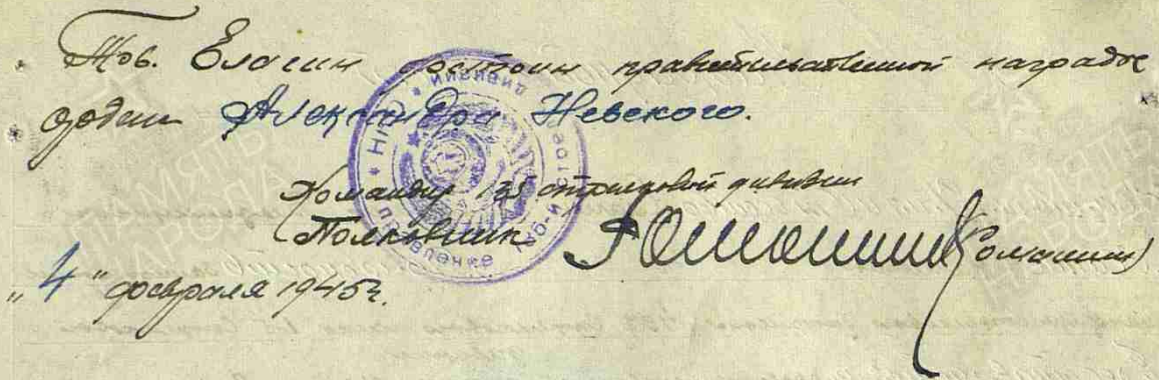 Тов. Елагин достоин правительственной награды
орден Александра Невского.
Командир 135 стрелковой дивизии
Полковник Ромашин (Ромашин)
"4" февраля 1945г.